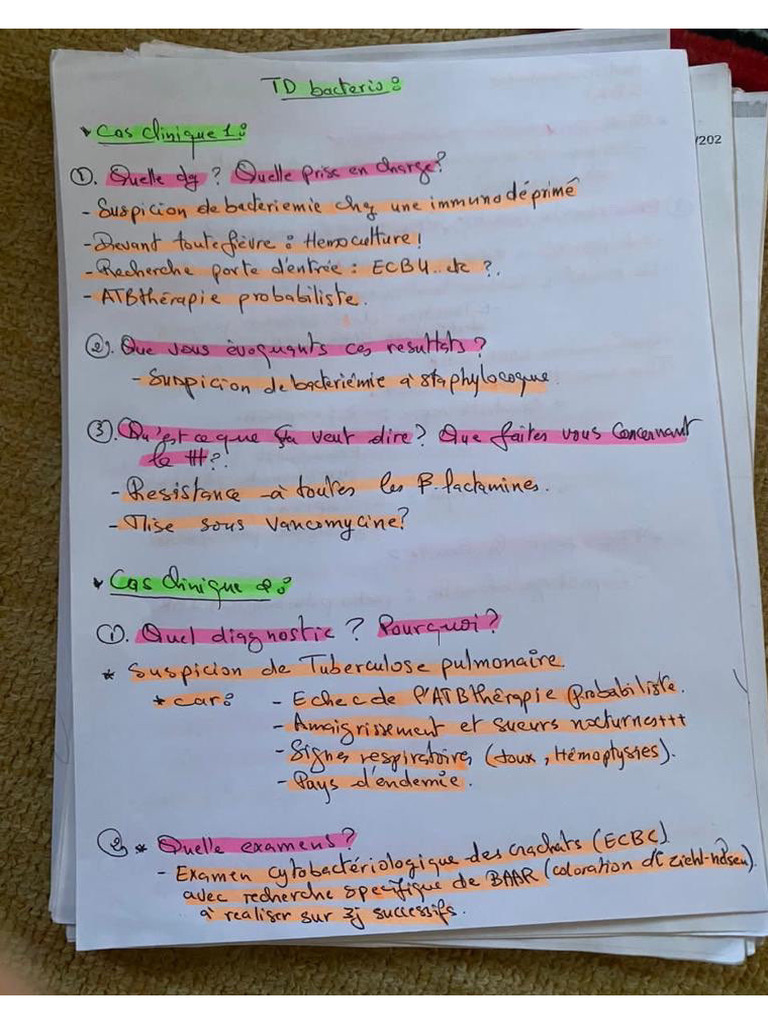 TD bacterio :
/202
* Cas clinique 1 :
①. Quelle dg ? Quelle prise en charge ?
- Suspicion de bactériemie chz une immunodéprimé
- Devant toute fièvre : Hemoculture !
- Recherche porte d'entrée : ECBU.. etc ?.
- ATBthérapie probabiliste.
②. Que vous évoquants ces resultats ?
- Suspicion de bacteriémie à staphylocoque
③. Qu'est ce que ça veut dire ? Que faites vous concernant
le ttt ?.
- Resistance à toutes les β.lactamines.
- Mise sous Vancomycine ?
* Cas clinique 2 :
①. Quel diagnostic ? Pourquoi ?
* Suspicion de Tuberculose pulmonaire.
* car : - Echec de l'ATBthérapie probabiliste.
- Amaigrissement et sueurs nocturnes+++
- Signes respiratoires (toux, Hémoptysies).
- Pays d'endemie.
②. * Quelle examens ?
- Examen cytobactériologique des crachats (ECBC)
avec recherche specifique de BAAR (coloration de ziehl-nelsen).
à realiser sur 3j successifs.